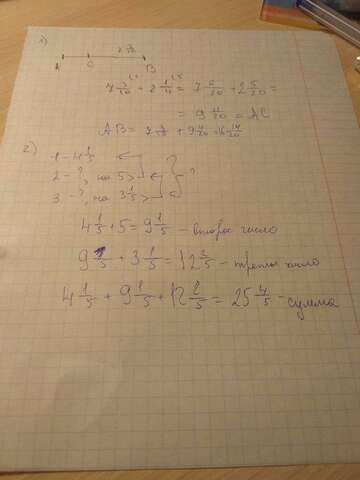 1)
A C B
7 3/10 + 2 1/4 = 7 6/20 + 2 5/20 =
= 9 11/20 = AC
AB = 7 3/10 + 9 11/20 = 16 17/20
2)
1 - 4 1/5
2 - ?, на 5 >
3 - ?, на 3 1/5 > ?
4 1/5 + 5 = 9 1/5 - второе число
9 1/5 + 3 1/5 = 12 2/5 - третье число
4 1/5 + 9 1/5 + 12 2/5 = 25 4/5 - сумма